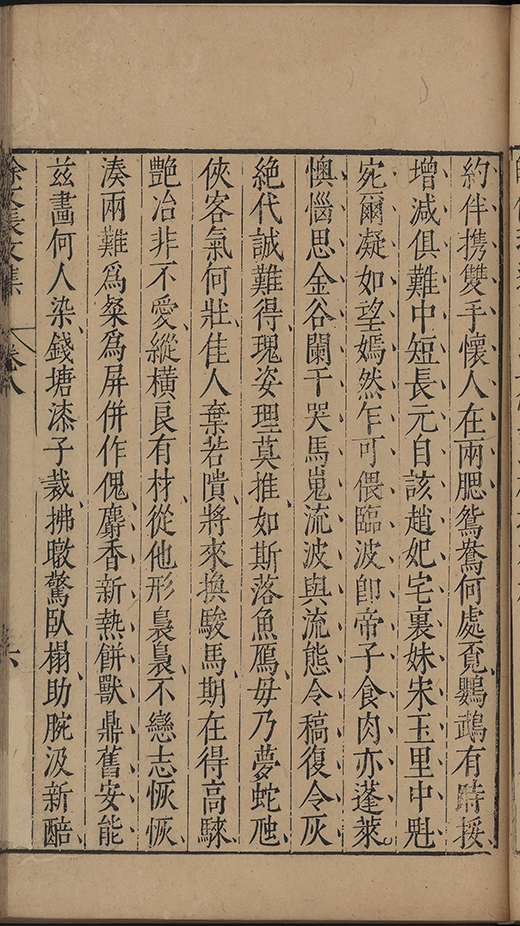 約伴携雙手懷人在兩腮鴛鴦何處覔鸚鵡有時挼
增減俱難中短長元自該趙妃宅裏妹宋玉里中魁
宛爾凝如望嫣然乍可偎臨波卽帝子食肉亦蓬萊
懊惱思金谷闌干哭馬嵬流波與流態令稿復令灰
絶代誠難得瑰姿理莫推如斯落魚鴈毋乃夢蛇虺
俠客氣何壯佳人棄若隤將來換駿馬期在得高騋
艶冶非不愛縱橫良有材從他形裊裊不戀志恢恢
湊兩難爲粲爲屏併作傀麝香新熱餅獸鼎舊安能
兹畫何人染錢塘漆子裁拂墩驚臥榻助腕汲新醅
徐文長文集
卷八
六